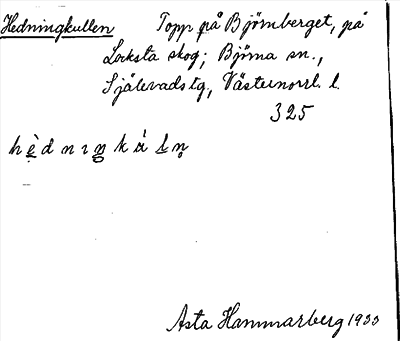 Hedningkullen Topp på Björnberget, på
Locksta skog; Björna sn.,
Själevads tg, Västernorrl. l.
325
hèdnıŋkàln
Asta Hammarberg 1933